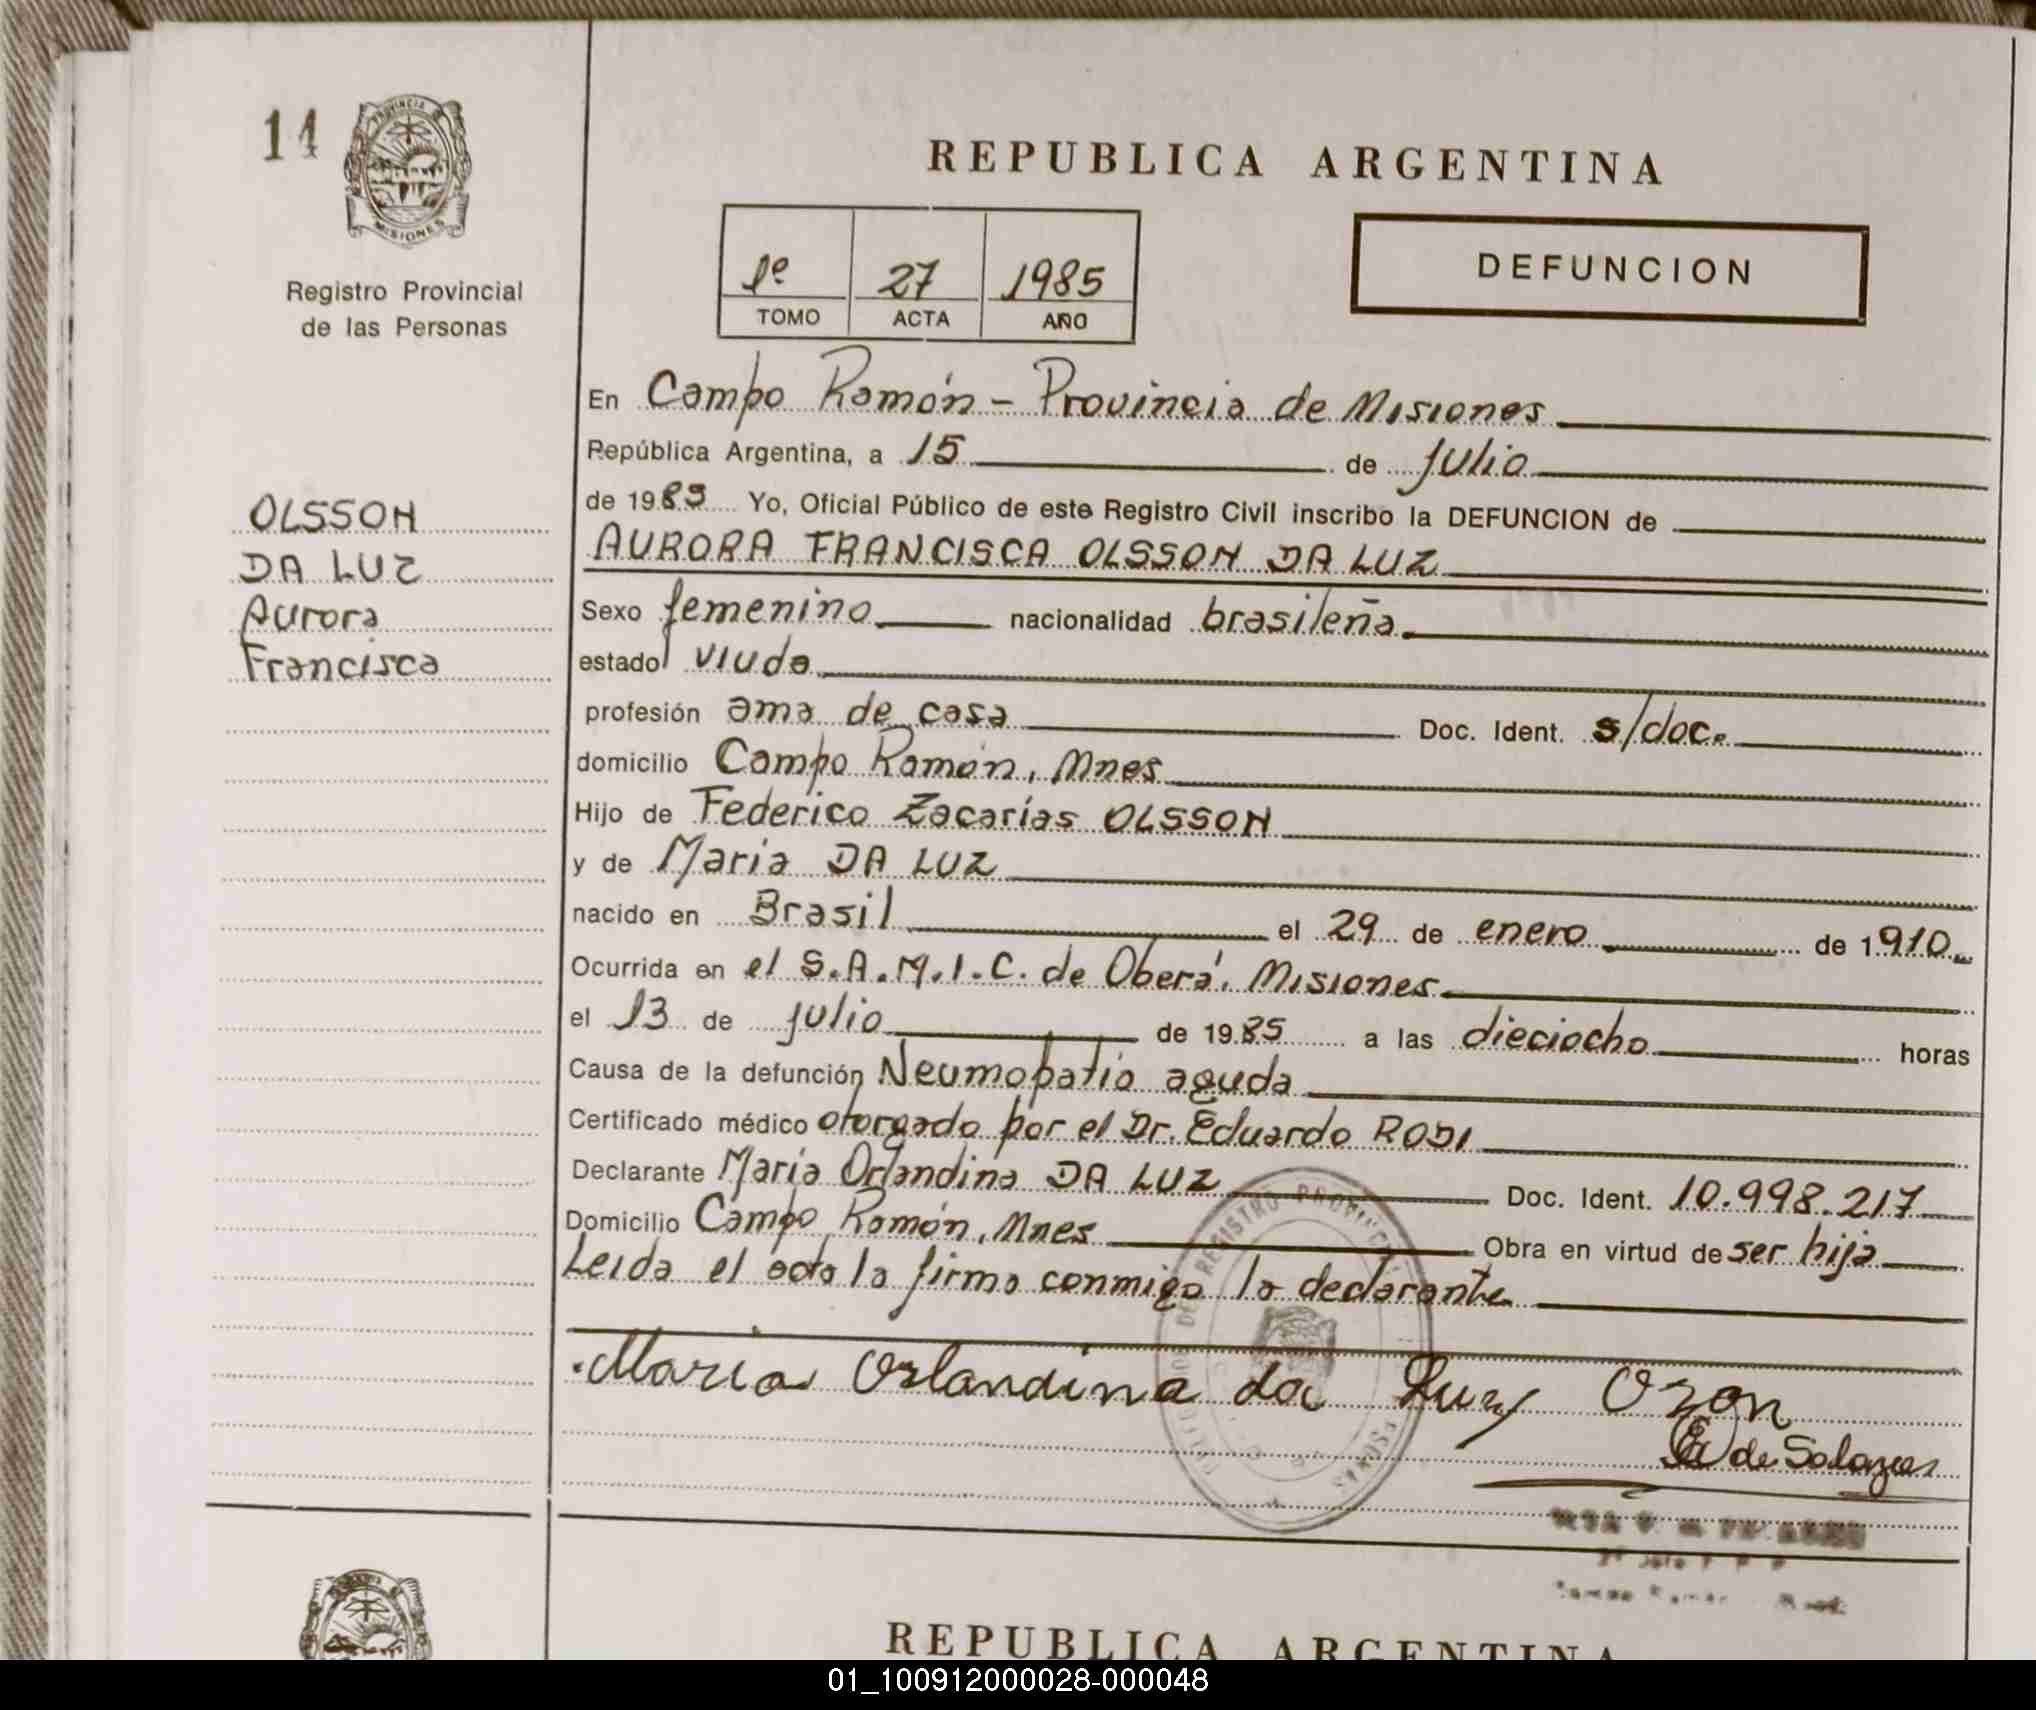 14
PROVINCIA
MISIONES
Registro Provincial
de las Personas
REPUBLICA ARGENTINA
1º 27 1985
TOMO ACTA AÑO
DEFUNCION
OLSSON
DA LUZ
Aurora
Francisca
En Campo Ramón - Provincia de Misiones
República Argentina, a 15 de julio
de 1985 Yo, Oficial Público de este Registro Civil inscribo la DEFUNCION de
AURORA FRANCISCA OLSSON DA LUZ
Sexo femenino nacionalidad brasileña
estado viuda
profesión ama de casa Doc. Ident. s/doc.
domicilio Campo Ramón, Mnes
Hijo de Federico Zacarías OLSSON
y de María DA LUZ
nacido en Brasil el 29 de enero de 1910
Ocurrida en el S.A.M.I.C. de Oberá, Misiones
el 13 de julio de 1985 a las dieciocho horas
Causa de la defunción Neumopatía aguda
Certificado médico otorgado por el Dr. Eduardo
Declarante María Orlandina DA LUZ Doc. Ident. 10.998.217
Domicilio Campo Ramón, Mnes Obra en virtud de ser hija
Leida el acta la firma conmigo la declarante
Maria Orlandina da Luz
de Salazar
REPUBLICA ARGENTINA
01_100912000028-000048